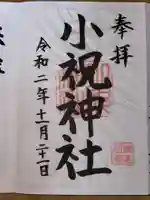 奉拝
小祝神社
令和二年十一月二十一日